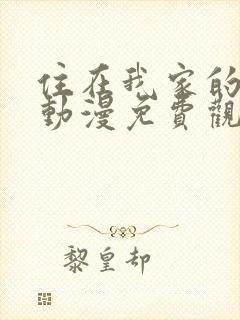 住在我家的
動漫免費觀
黎皇却